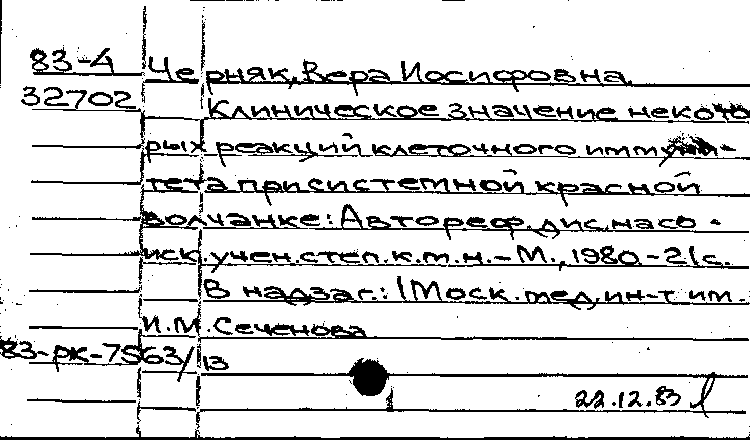 83-4 Черняк, Вера Иосифовна
32702 Клиническое значение некото
рых реакций клеточного иммуни-
тета при системной красной
волчанке: Автореф. дис. на со-
иск. учен. степ. к.м.н. - М., 1980. - 21с.
В надзаг.: 1 Моск. мед. ин-т им.
И.М. Сеченова
83-рк-7563/13
22.12.83